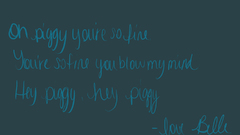 Oh piggy you're so fine
You're so fine you blow my mind
Hey piggy hey piggy
- love Belle